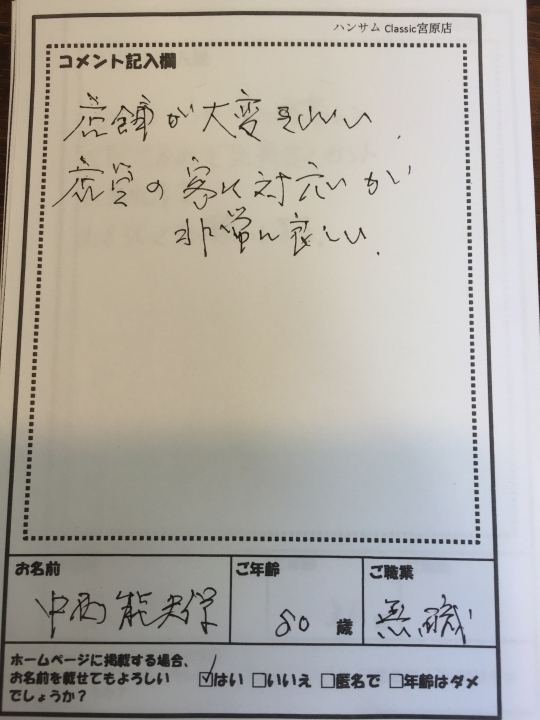 ハンサム Classic宮原店
コメント記入欄
店舗が大変きれい
店員の客に対応いかい
非常に良しい.
お名前
ご年齢
ご職業
中西
80 歳
無職
ホームページに掲載する場合、
お名前を載せてもよろしい
でしょうか?
☑はい □いいえ □匿名で □年齢はダメ